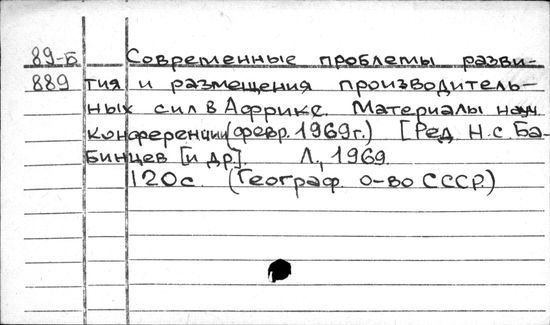 89-Б Современные проблемы разви-
889 тия и размещения производитель-
ных сил в Африке. Материалы науч.
конференции (февр. 1969г.) [Ред. Н.С. Ба-
бинцев [и др]. Л., 1969.
120с. (Географ. о-во СССР.)